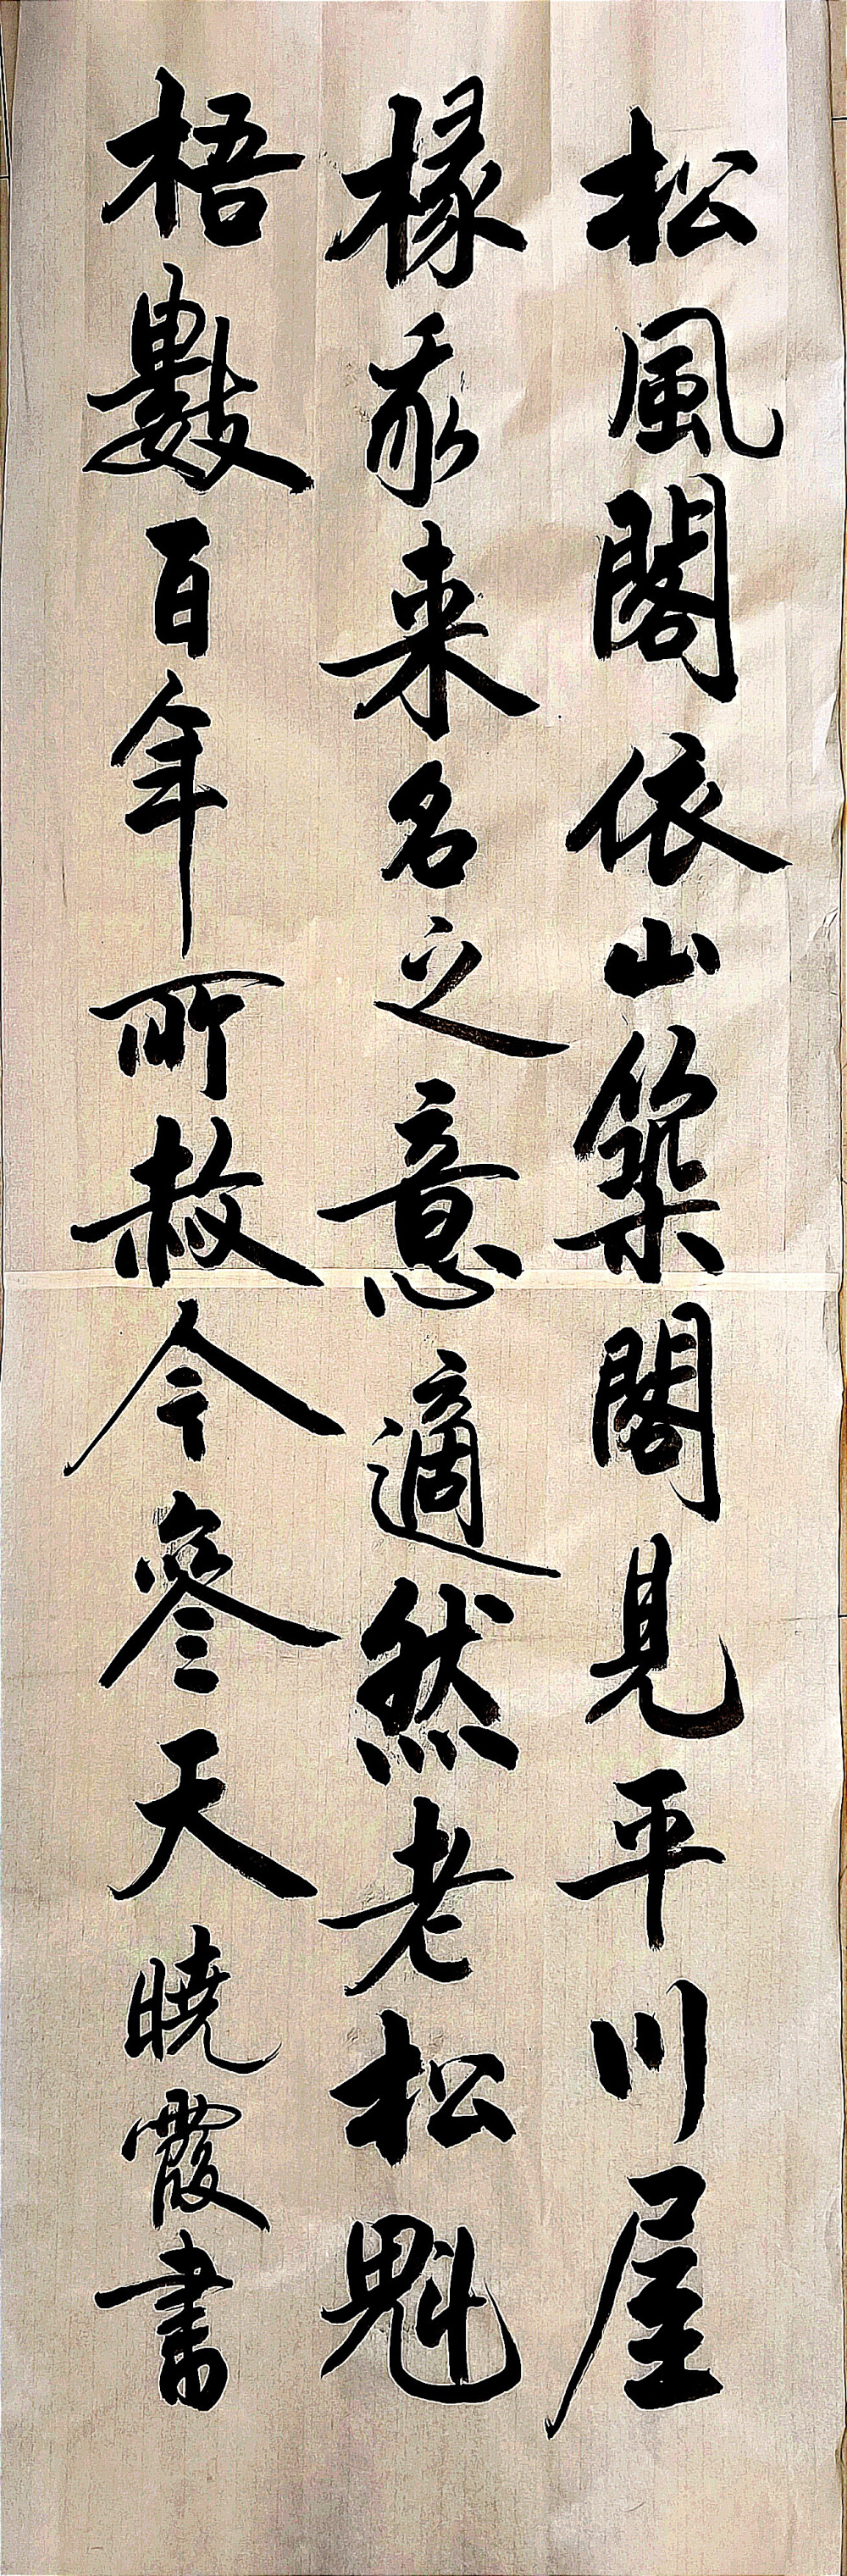 松風閣依山築閣見平川屋
椽我来名之意適然老松魁
梧數百年所赦今參天曉霞書